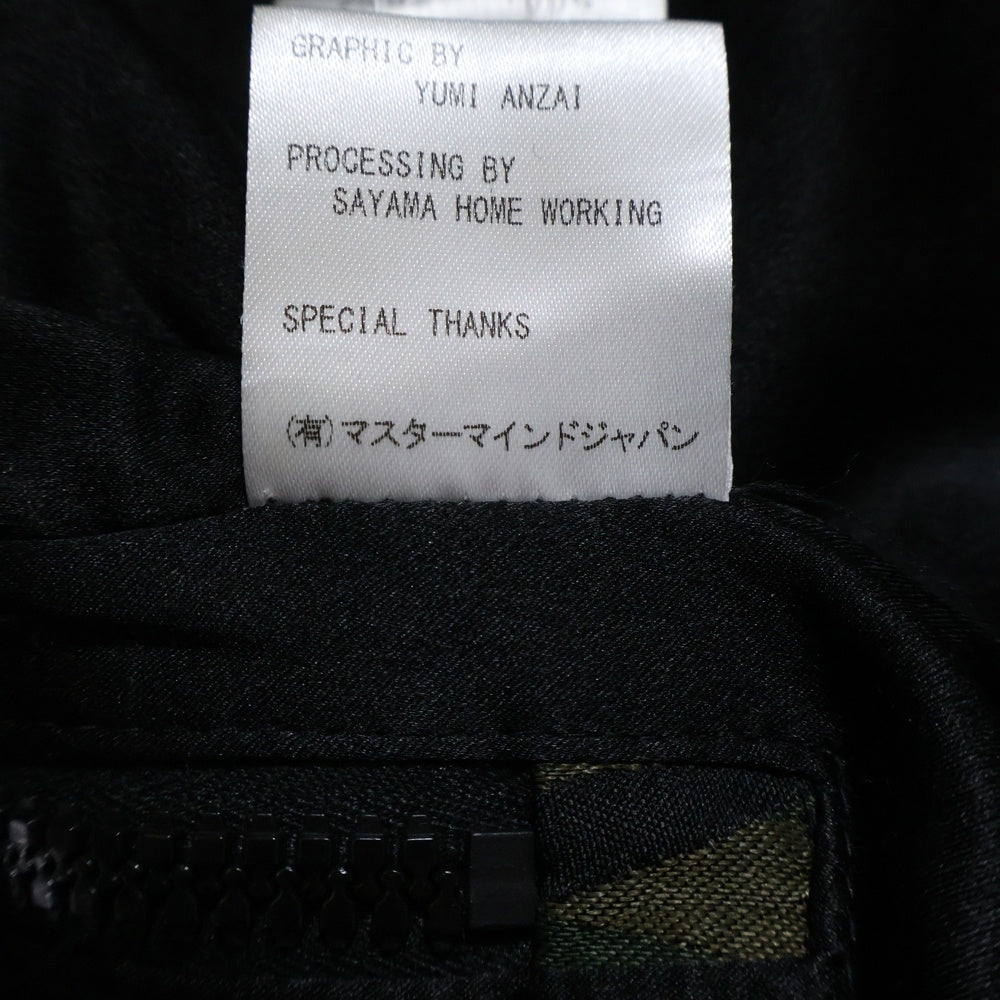 GRAPHIC BY
YUMI ANZAI
PROCESSING BY
SAYAMA HOME WORKING
SPECIAL THANKS
(有)マスターマインドジャパン